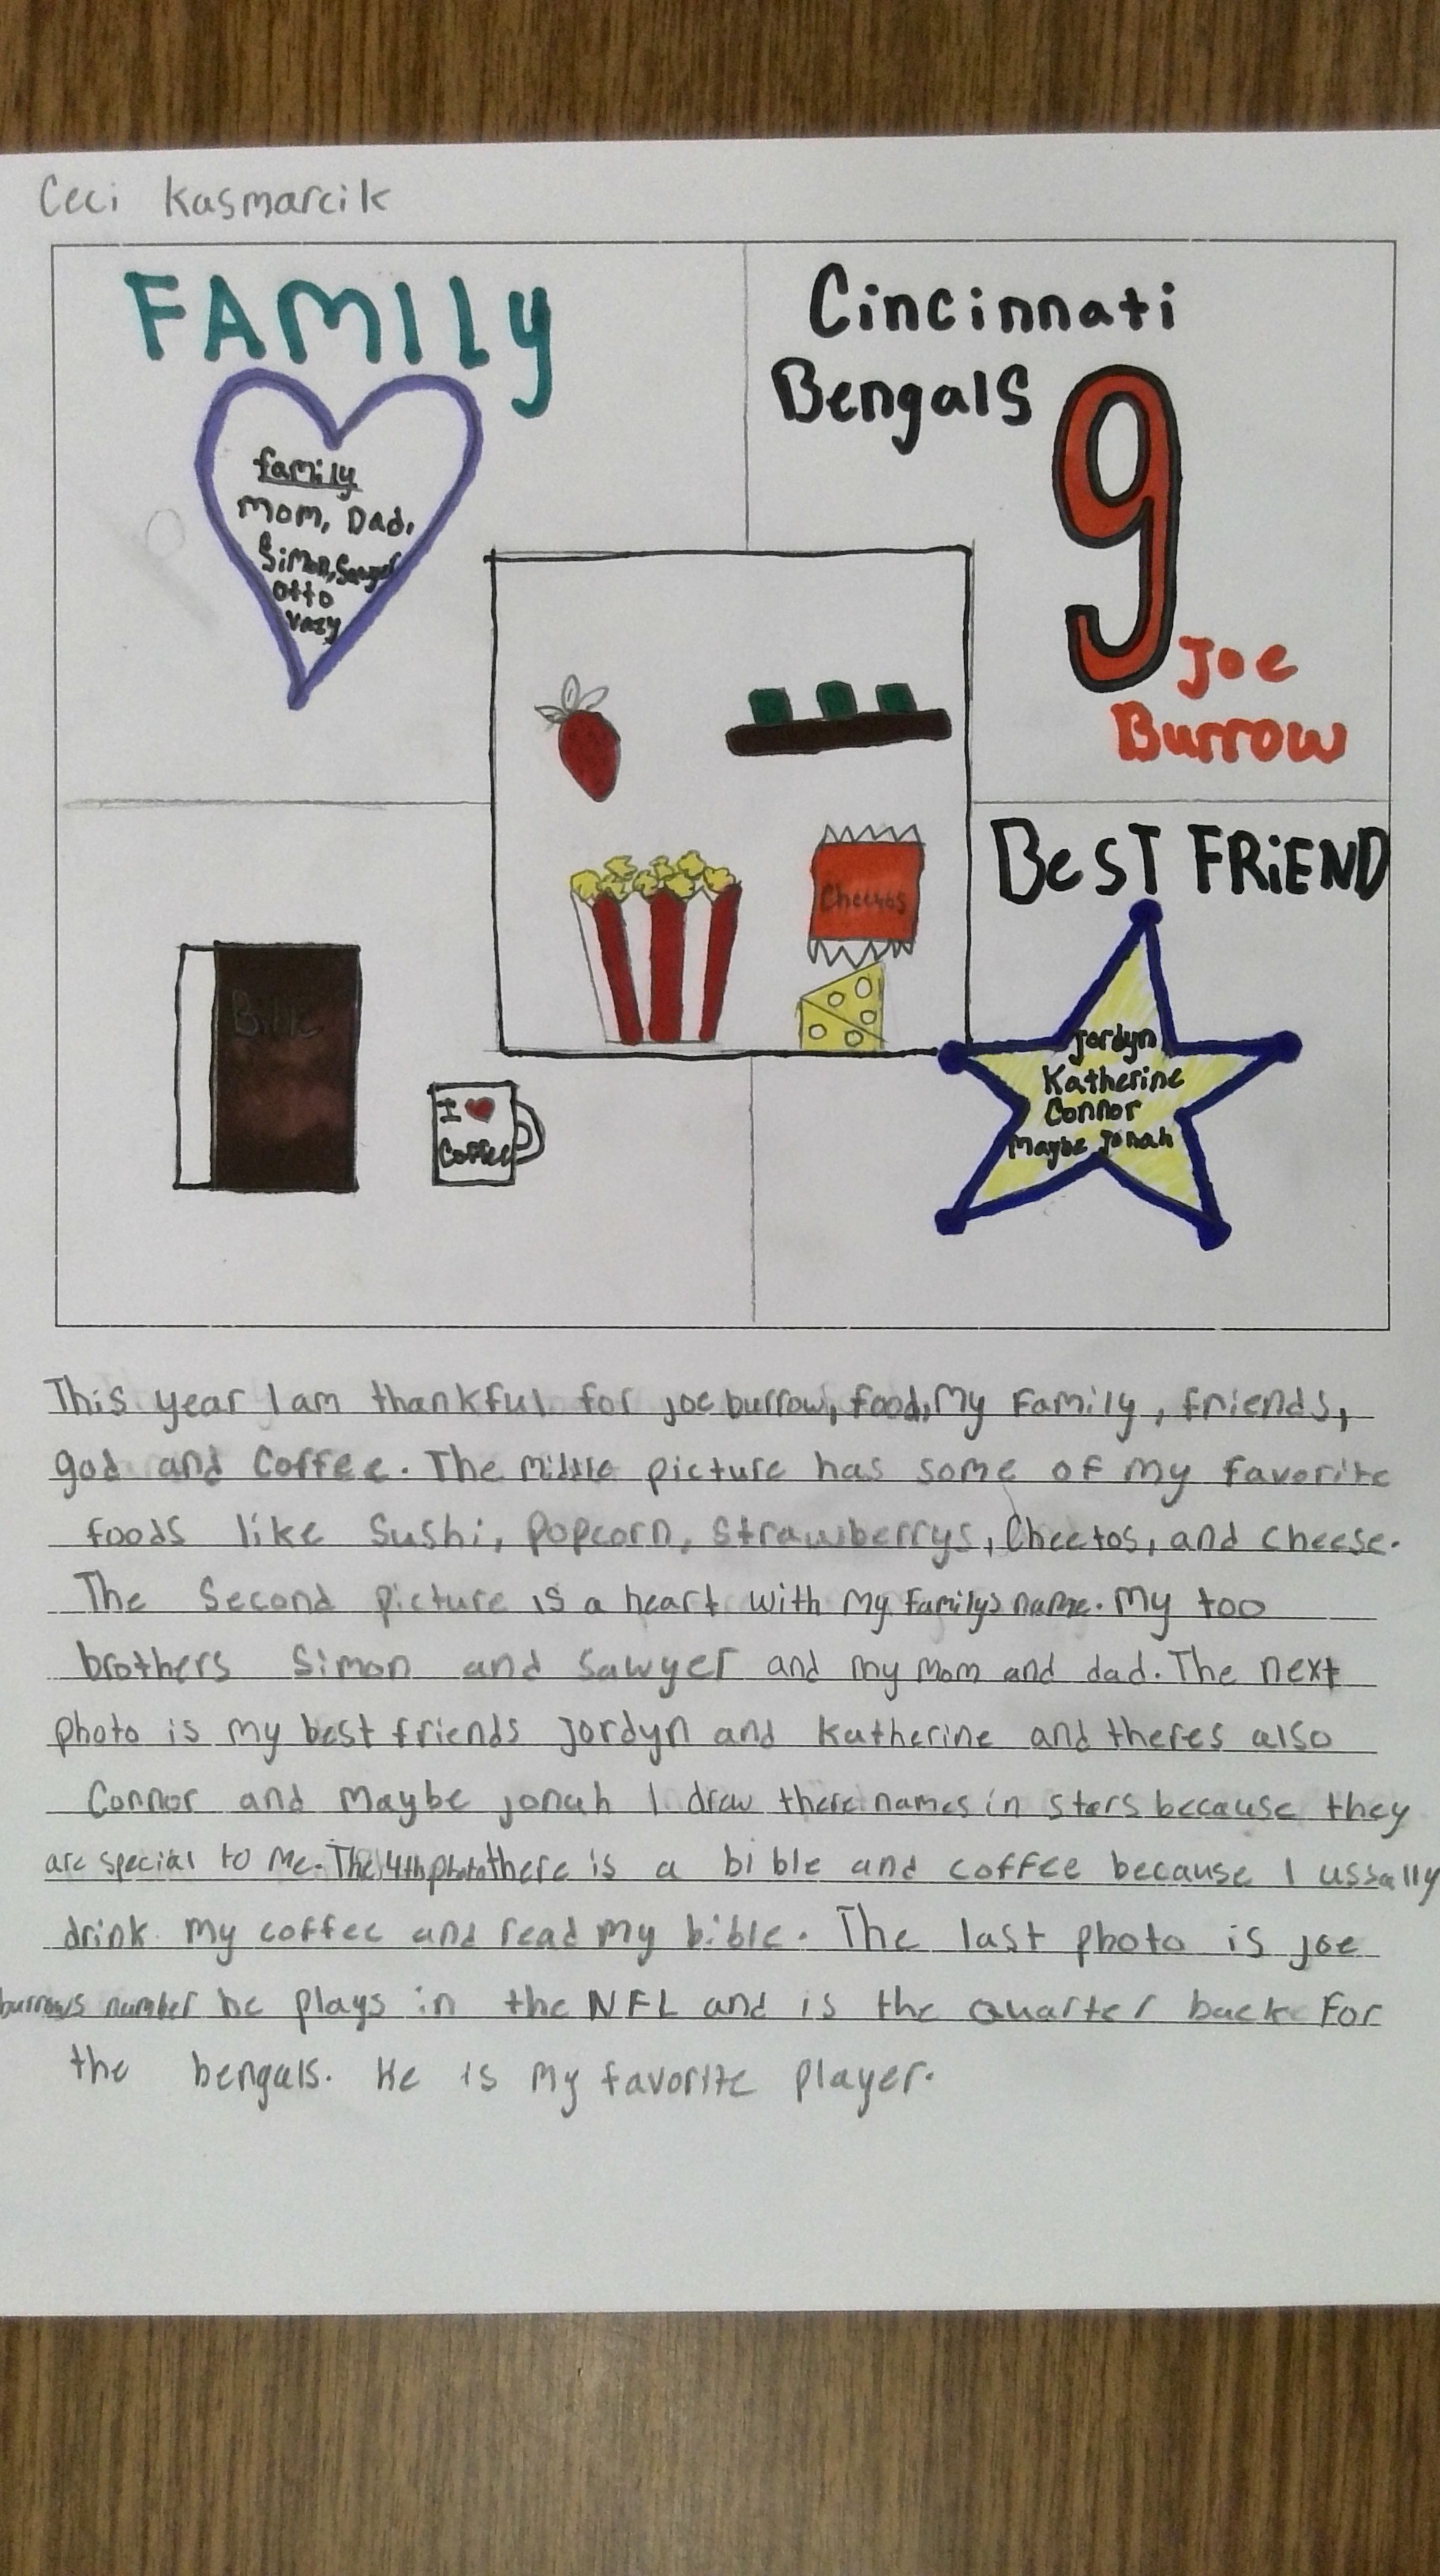 Ceci Kasmarcik
FAMIly
family
Mom, Dad,
Simon, Sawyer
Otto
Cincinnati
Bengals
9
Joe
Burrow
Cheetos
BeST FRiEND
Jordyn
Katherine
Connor
Maybe Jonah
Bible
I ❤
Coffee
This year I am thankful for joe burrow, food, My Family, friends,
god and Coffee. The middle picture has some of my favorite
foods like Sushi, Popcorn, Strawberrys, Cheetos, and cheese.
The Second picture is a heart with my family's name. My too
brothers Simon and Sawyer and my mom and dad. The next
photo is my best friends Jordyn and Katherine and theres also
Connor and Maybe jonah I draw there names in stars because they
are special to me. The 4th photo there is a bible and coffee because I ussally
drink my coffee and read my bible. The last photo is joe
burrows number he plays in the NFL and is the Quarter back For
the bengals. He is my favorite player.